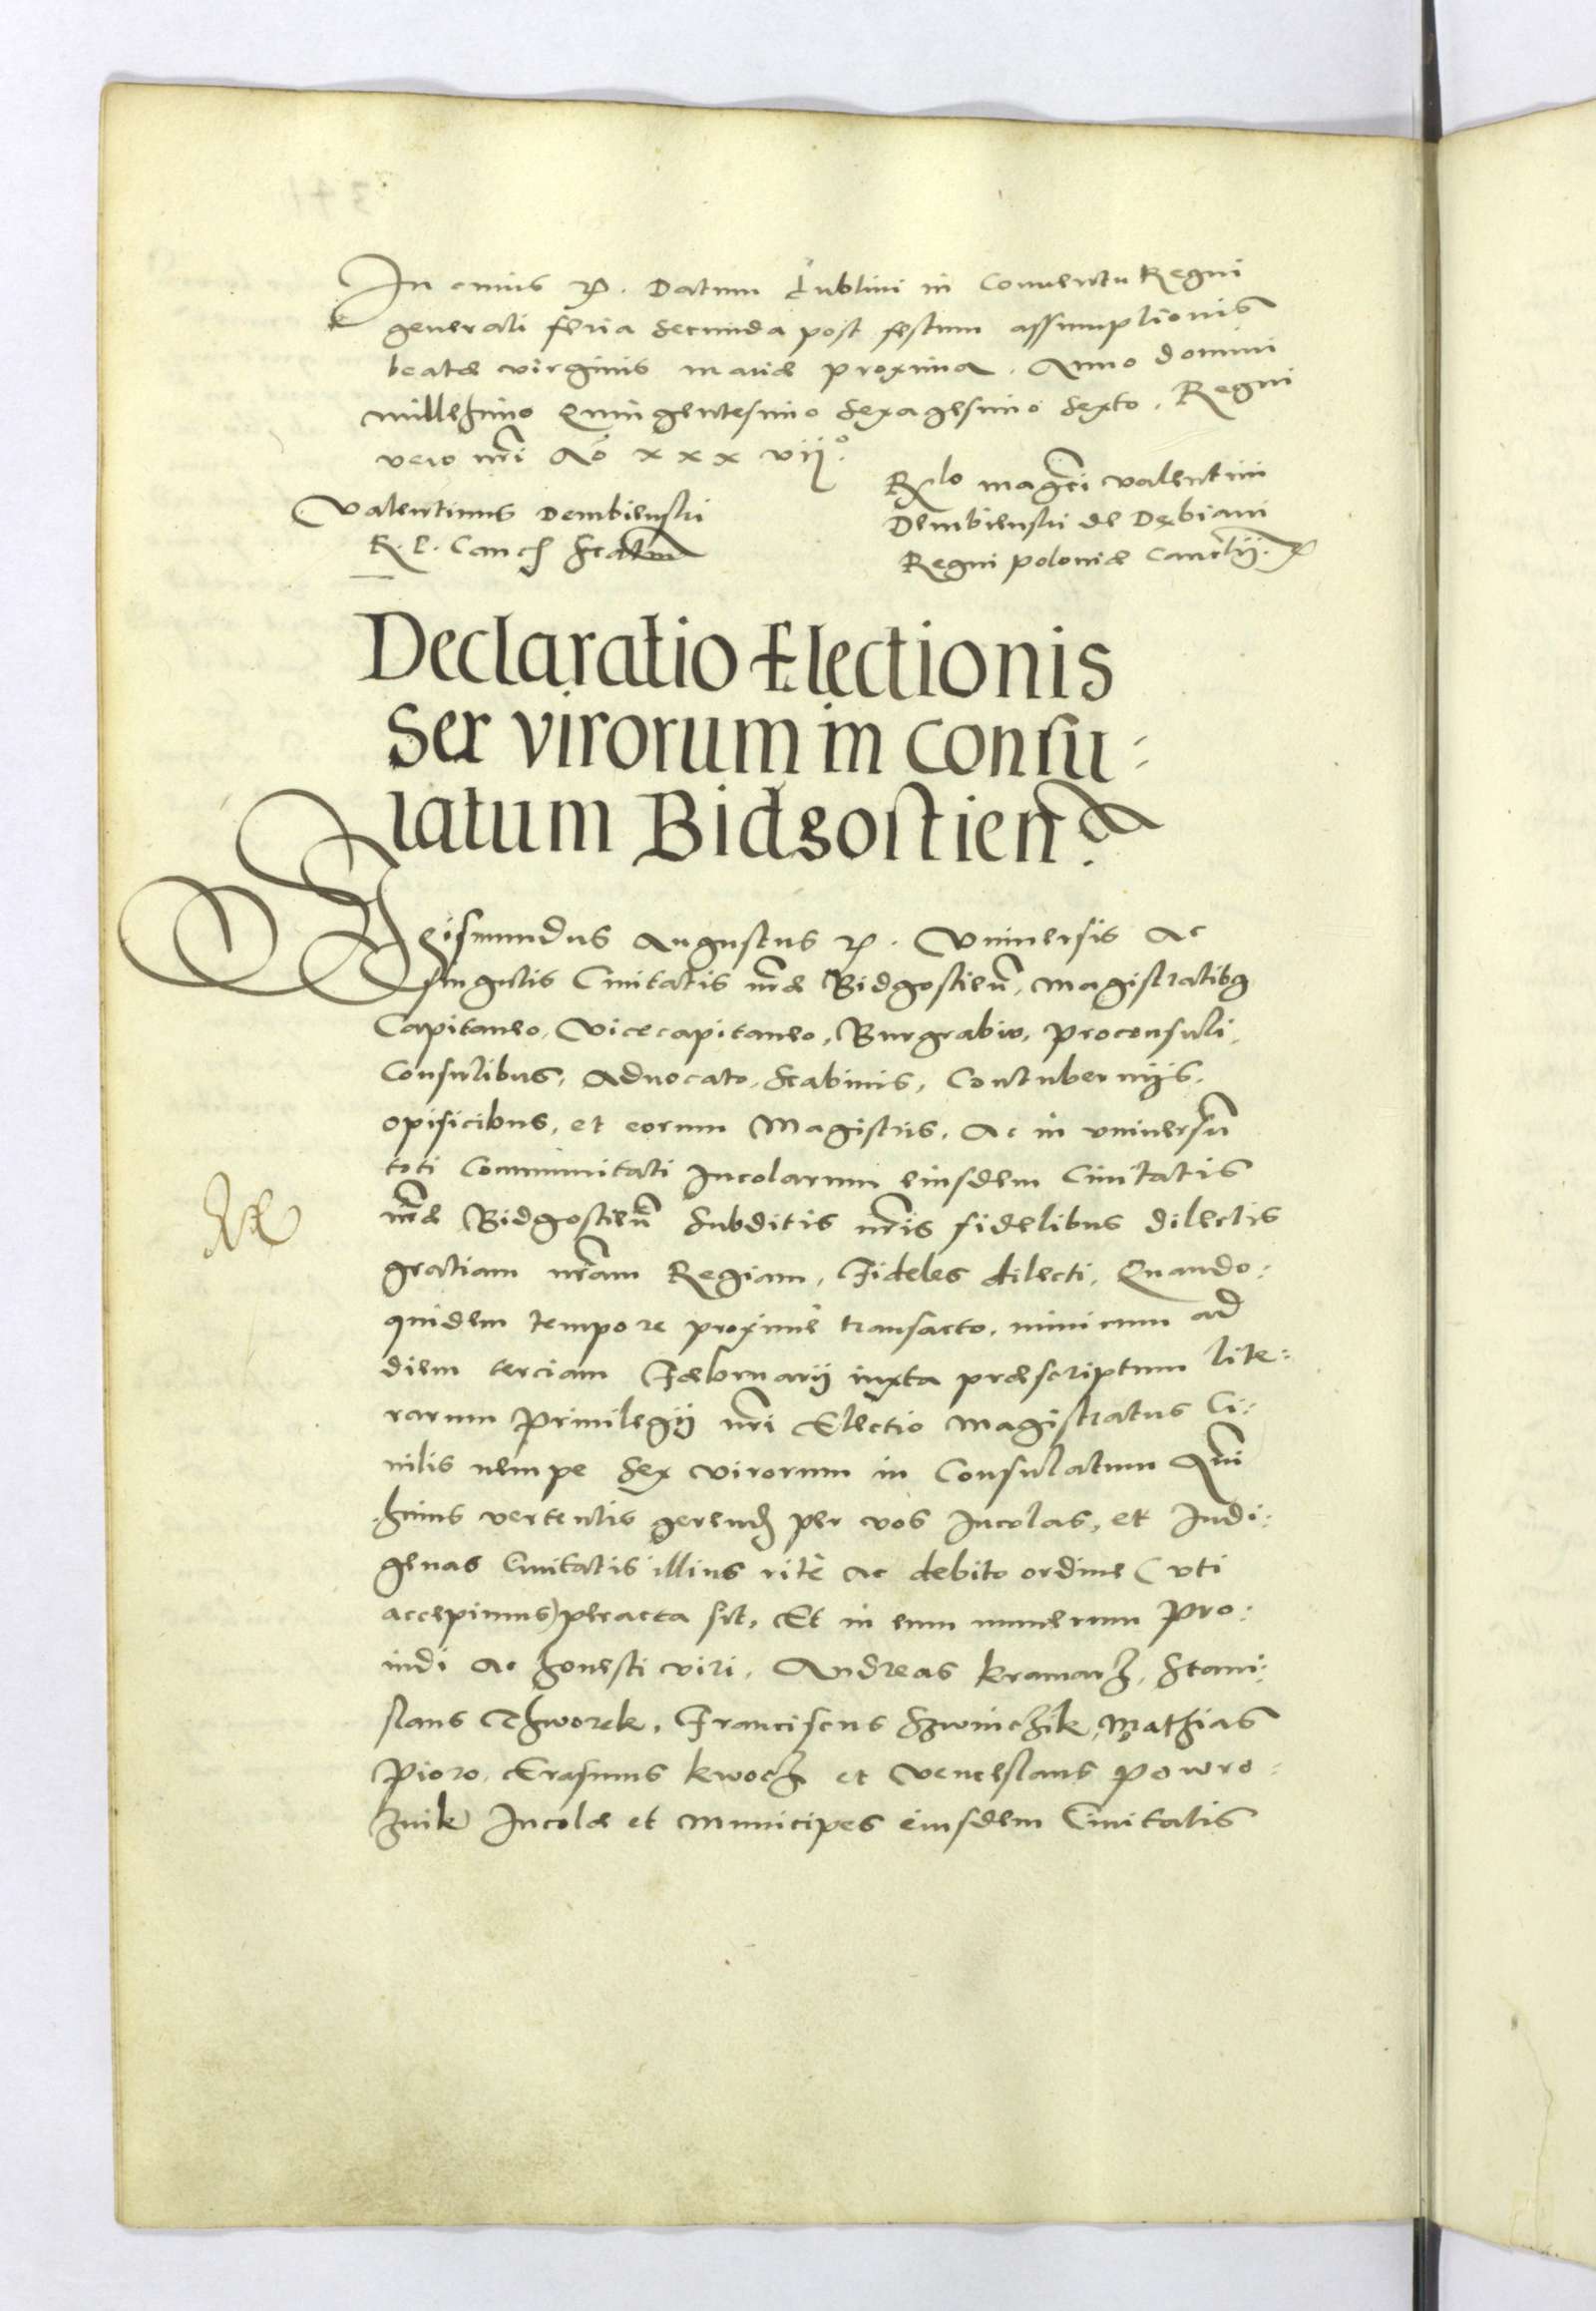 In cuius etc. Datum Lublini in Conuentu Regni
generali feria secunda post festum assumptionis
beatæ virginis mariæ proxima. Anno domini
millesimo Quingentesimo Sexagesimo Sexto. Regni
vero nri Ao xxxvij°.
Valentinus Dembienski
R. P. Canc
Rlo magci valentini
Dembienski de Dębiani
Regni poloniæ Cancelrij. etc
Declaratio Electionis
sex virorum in Consu:
latum Bidgostien.
Sigismundus Augustus etc. Vniuersis Ac
singulis Ciuitatis nræ Bidgostien. Magistratibus
Capitaneo, Vicecapitaneo, Burgrabio, proconsuli,
Consulibus, Aduocato, Scabinis, Contubernijs,
opificibus, et eorum Magistris, Ac in vniuersum
toti Communitati Incolarum eiusdem Ciuitatis
nræ Bidgostien Subditis nris fidelibus dilectis
gratiam nram Regiam, Fideles dilecti, Quando:
quidem tempore proximè transacto, nimirum ad
diem terciam Fæbruarij iuxta præscriptum lite:
rarum Priuilegij nri Electio Magistratus Ci:
uilis nempe Sex virorum in Consulatum Anni
huius vertentis gerend per vos Incolas, et Indi:
genas Ciuitatis illius ritè ac debito ordine (vti
accepimus) peracta sit, Et in eum numerum Pro:
uidi Ac honesti viri, Andreas Kramarz, Stani:
slaus Thworek, Franciscus Szwinczik, Mathias
Pioro, Erasmus Kwocz et Venceslaus Powro:
znik Incolæ et Municipes eiusdem Ciuitatis